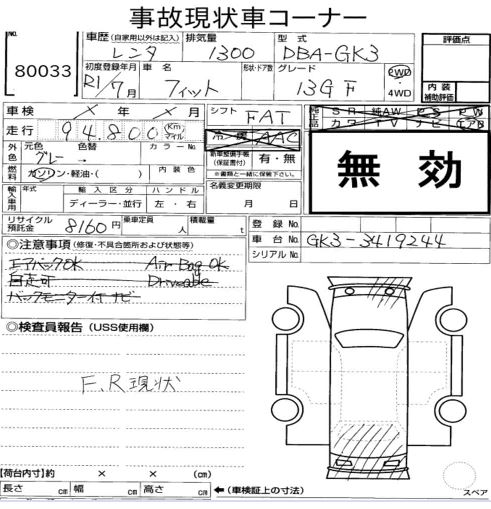 事故現状車コーナー
No. 80033
車歴 (自家用以外は記入) レンタ
排気量 1300
型式 DBA-GK3
評価点
初度登録年月 R1/7月
車名 フィット
形状・ドア数
グレード 13G F
2WD・4WD
内装補助評価
車検 × 年 × 月
シフト FAT
純正品 SR 純AW PS PW
カワ TV ナビ エアB
走行 94,800 Km マイル
冷房 AAC
外色 元色 グレー 色替 カラーNo.
新車整備手帳(保証書付) 有・無
※書類と一緒に保管下さい。
無効
燃料 ガソリン・軽油・( ) 内装色
名義変更期限
月 日
輸入車用 年式 輸入区分 ハンドル
ディーラー・並行 左・右
リサイクル預託金 8160円
乗車定員 人
積載量 t
登録No.
車台No. GK3-3419244
シリアルNo.
◎注意事項 (修復・不具合箇所および状態等)
エアバックOK Air Bag OK
自走可 Driveable
バックモニター付ナビ
◎検査員報告 (USS使用欄)
F.R現状
【荷台内寸】約 × × (cm)
長さ cm 幅 cm 高さ cm ←(車検証上の寸法)
スペア